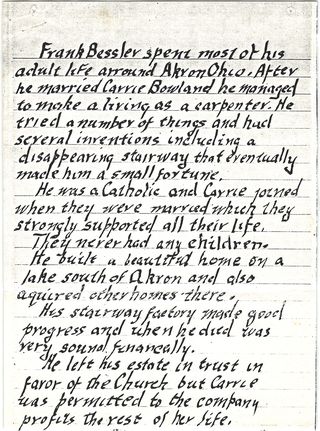 Frank Bessler spent most of his
adult life arround Akron Ohio. After
he married Carrie Bowland he managed
to make a living as a carpenter. He
tried a number of things and had
several inventions including a
disappearing stairway that eventually
made him a small fortune.
He was a Catholic and Carrie joined
when they were married which they
strongly supported all their life.
They never had any children.
He built a beautiful home on a
lake south of Akron and also
aquired other homes there.
His stairway factory made good
progress and when he died was
very sound financally.
He left his estate in trust in
favor of the Church but Carrie
was permitted to the company
profits the rest of her life.